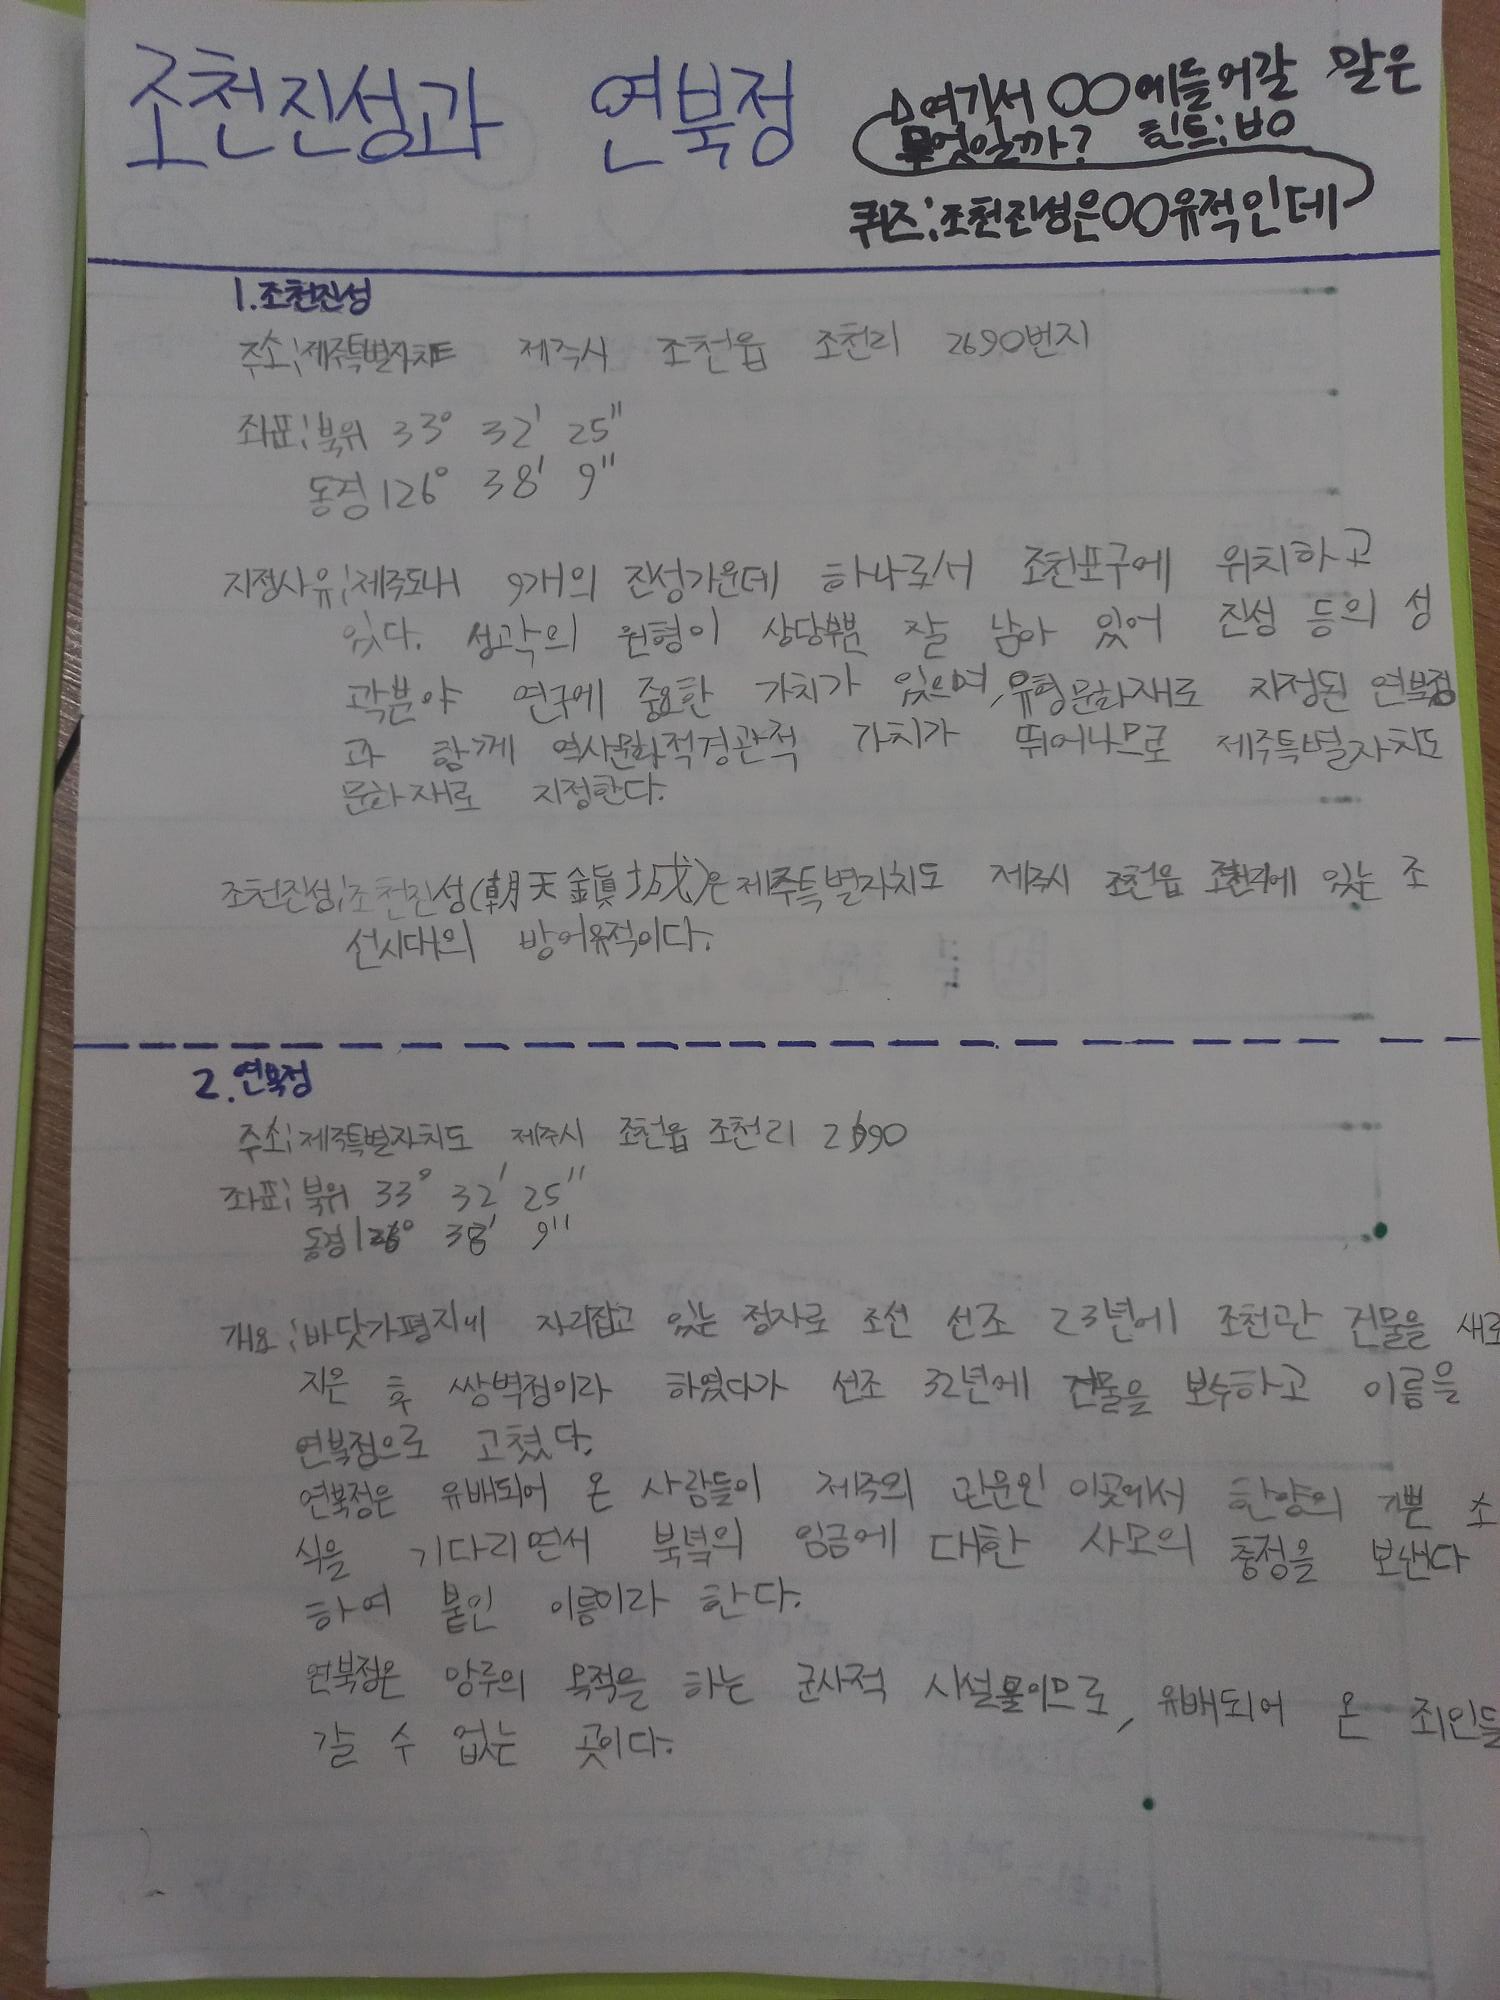 조천진성과 연북정
여기서 OO에들어갈 말은
무엇일까? 힌트:ㅂㅇ
퀴즈:조천진성은OO유적인데
1.조천진성
주소:제주특별자치도 제주시 조천읍 조천리 2690번지
좌표:북위 33° 32' 25"
동경126° 38' 9"
지정사유:제주도내 9개의 진성가운데 하나로서 조천포구에 위치하고
있다. 성곽의 원형이 상당부분 잘 남아 있어 진성 등의 성
곽분야 연구에 중요한 가치가 있으며,유형문화재로 지정된 연북정
과 함께 역사문화적경관적 가치가 뛰어나므로 제주특별자치도
문화재로 지정한다.
조천진성:조천진성(朝天鎭城)은제주특별자치도 제주시 조천읍 조천리에 있는 조
선시대의 방어유적이다.
2.연북정
주소:제주특별자치도 제주시 조천읍 조천리 2690
좌표:북위 33° 32' 25"
동경126° 38' 9"
개요:바닷가평지에 자리잡고 있는 정자로 조선 선조 23년에 조천관 건물을 새로
지은 후 쌍벽정이라 하였다가 선조 32년에 건물을 보수하고 이름을
연북정으로 고쳤다.
연북정은 유배되어 온 사람들이 제주의 관문인 이곳에서 한양의 기쁜 소
식을 기다리면서 북녘의 임금에 대한 사모의 충정을 보낸다
하여 붙인 이름이라 한다.
연북정은 망루의 목적을 하는 군사적 시설물이므로, 유배되어 온 죄인들
갈 수 없는 곳이다.